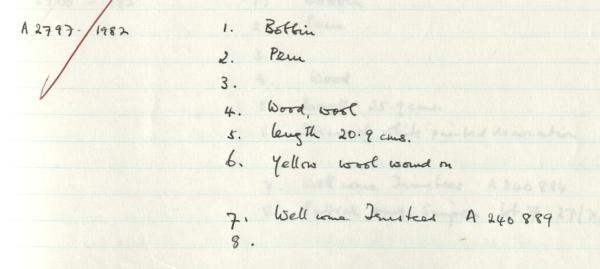 A 2797-1982 1. Bobbin
2. Peru
3.
4. Wood, wool
5. length 20.9 cms.
6. Yellow wool wound on
7. Wellcome Trustees A 240 889
8.